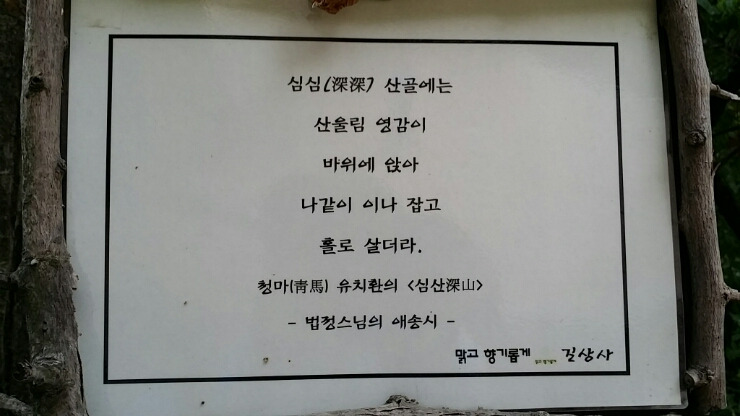 심심(深深) 산골에는
산울림 영감이
바위에 앉아
나같이 이나 잡고
홀로 살더라.
청마(靑馬) 유치환의 <심산深山>
- 법정스님의 애송시 -
맑고 향기롭게 길상사